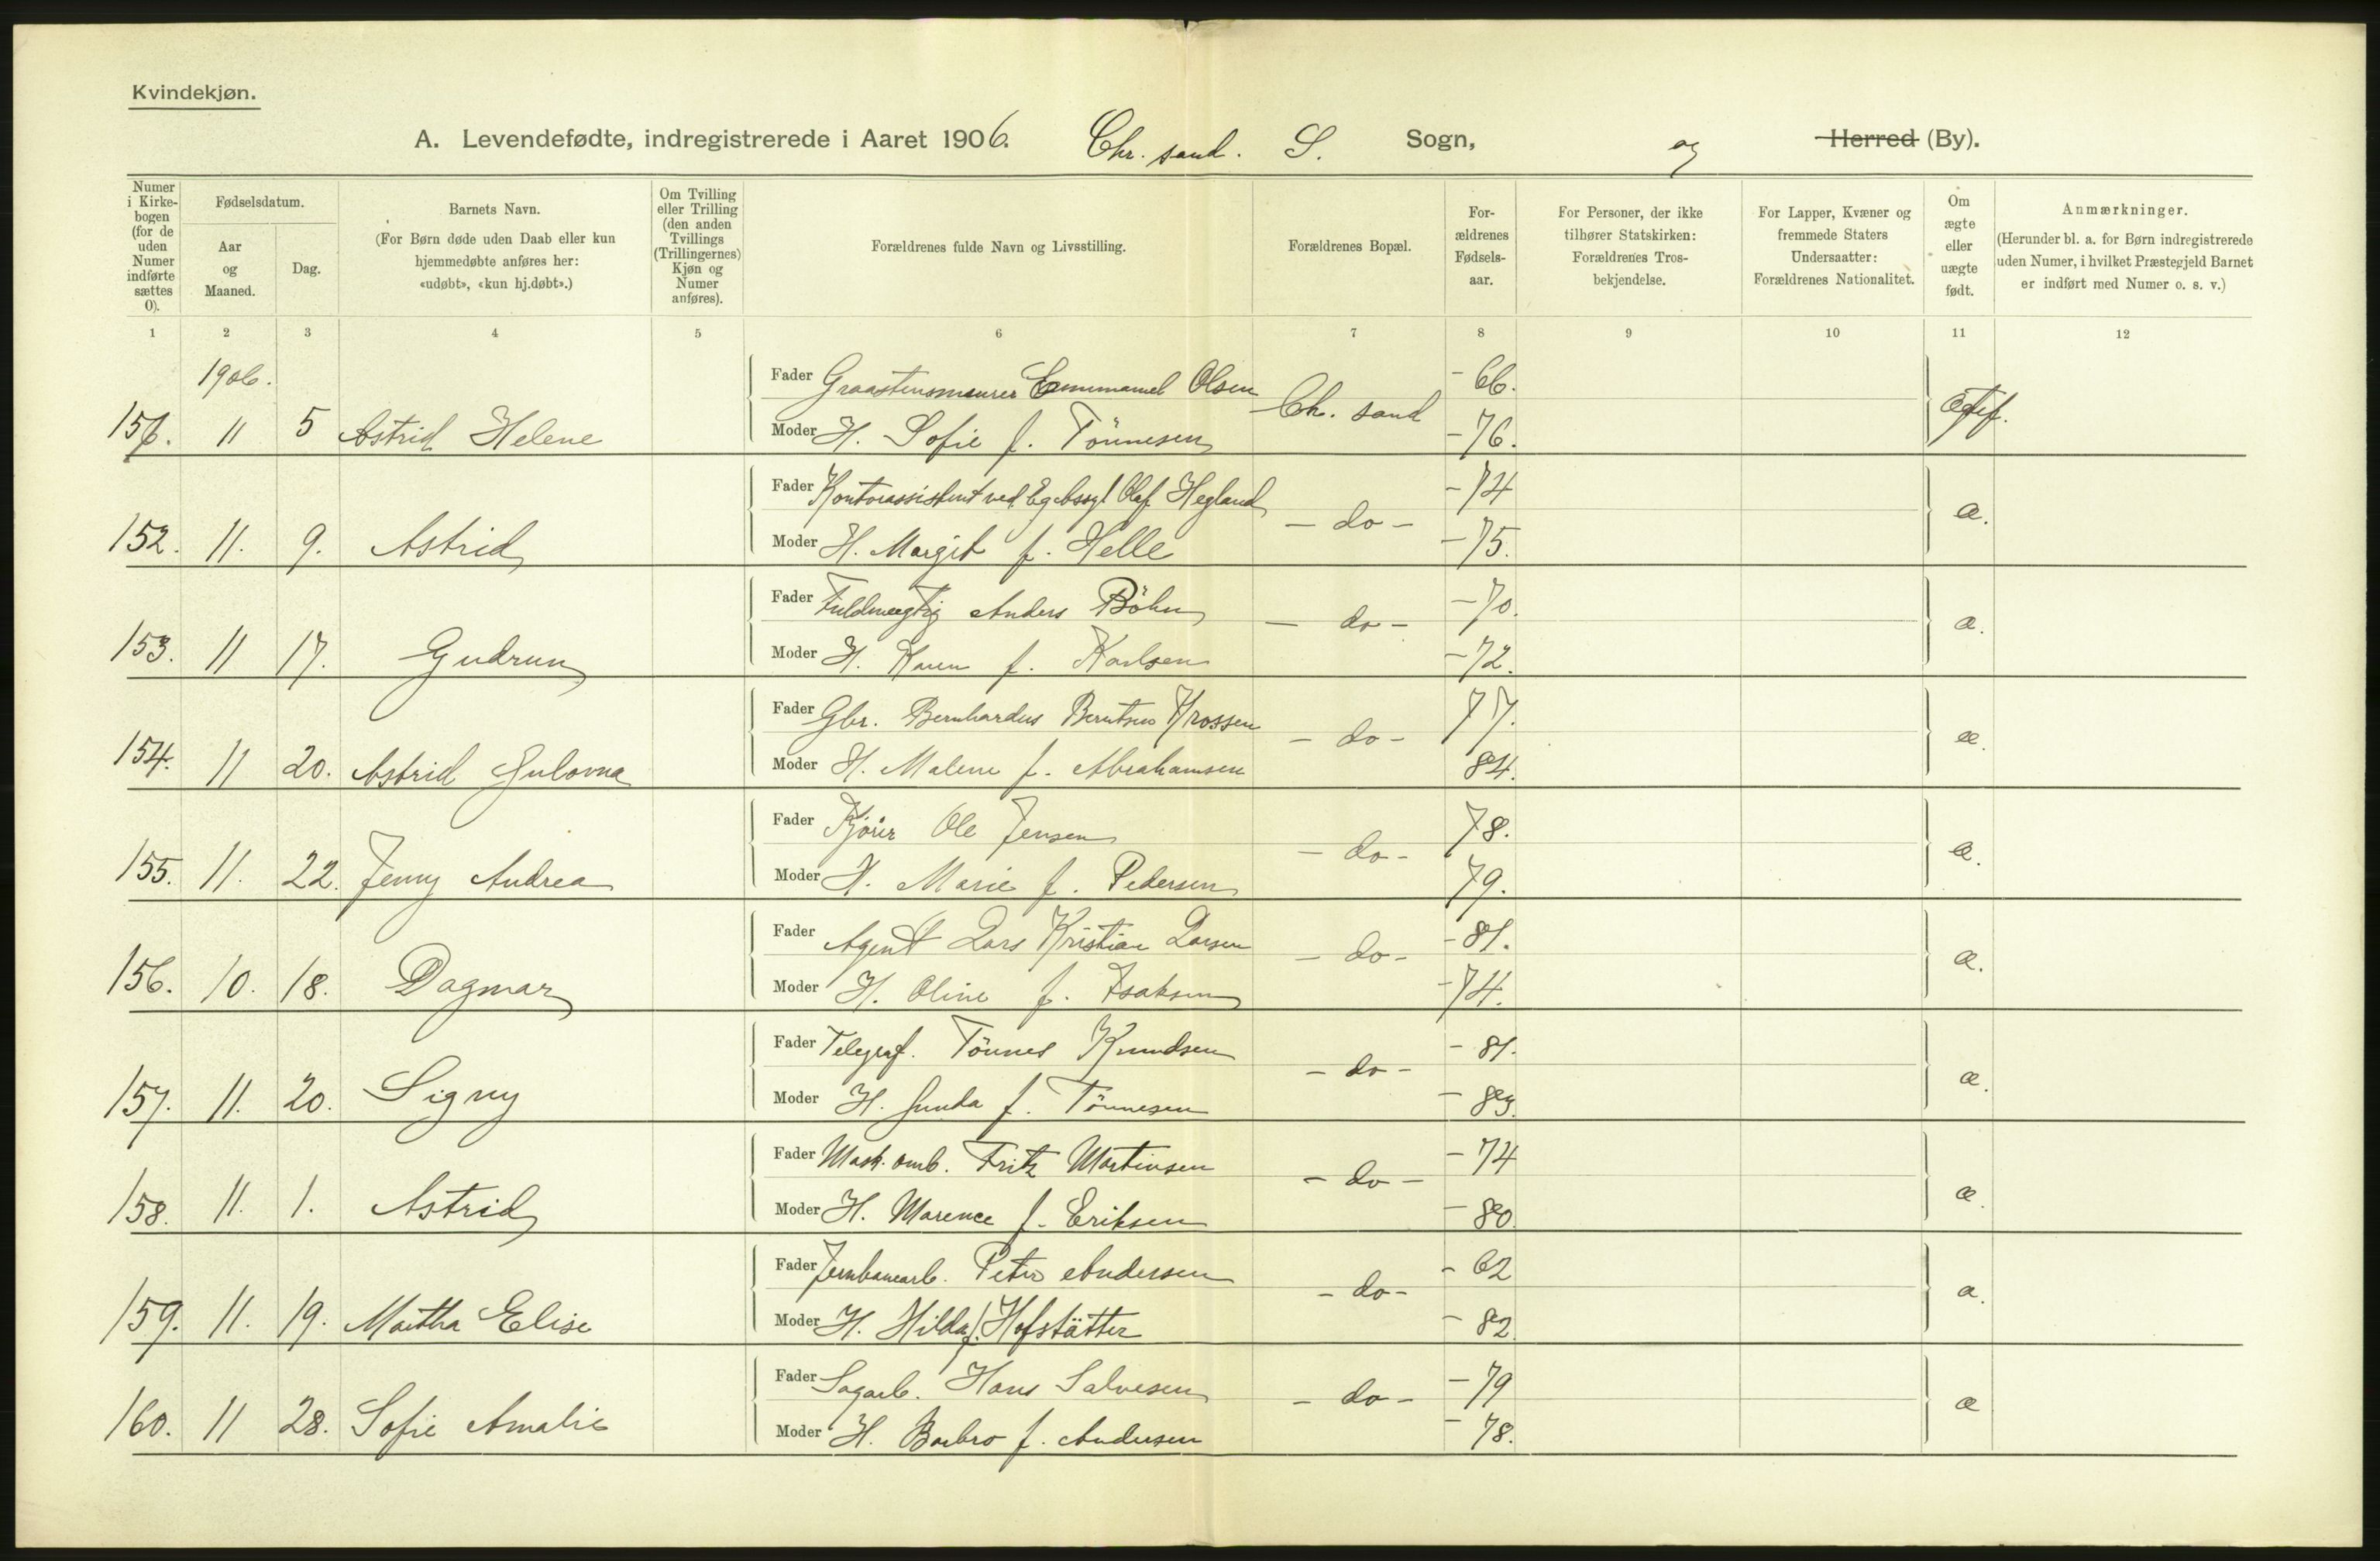 Kvindekjøn.
A. Levendefødte, indregistrerede i Aaret 1906. Chr. sand. S. Sogn, og Herred (By).
Numer i Kirkebogen (for de uden Numer indførte sættes 0).
Fødselsdatum.
Aar og Maaned.
Dag.
Barnets Navn.
(For Børn døde uden Daab eller kun hjemmedøbte anføres her: «udøbt», «kun hj.døbt».)
Om Tvilling eller Trilling (den anden Tvillings (Trillingernes) Kjøn og Numer anføres).
Forældrenes fulde Navn og Livsstilling.
Forældrenes Bopæl.
Forældrenes Fødselsaar.
For Personer, der ikke tilhører Statskirken: Forældrenes Trosbekjendelse.
For Lapper, Kvæner og fremmede Staters Undersaatter: Forældrenes Nationalitet.
Om ægte eller uægte født.
Anmærkninger.
(Herunder bl. a. for Børn indregistrerede uden Numer, i hvilket Præstegjeld Barnet er indført med Numer o. s. v.)
1 2 3 4 5 6 7 8 9 10 11 12
1906.
Fader Graastensmurer Emmanuel Olsen Ch. sand - 66.
151. 11 5 Astrid Helene Moder H. Sofie f. Tönnesen - 76.
Fader Kontorassistent ved Olaf Hegland - do - - 74 æ.
152. 11. 9. Astrid Moder H. Margit f. Helle - 75.
Fader Fuldmægtig Anders Böhn - do - - 70. æ.
153. 11 17. Gudrun Moder H. Karen f. Karlsen - 72.
Fader Gbr. Bernhardus Berntsen Krossen - do - 77. æ.
154. 11 20. Astrid Gulovna Moder H. Malene f. Abrahamsen 84.
Fader Kjörer Ole Jensen - do - 78. æ.
155. 11. 22. Jenny Andrea Moder H. Marie f. Pedersen 79.
Fader Agent Lars Kristian Larsen - do - - 81. æ.
156. 10. 18. Dagmar Moder H. Oline f. Isaksen - 74.
Fader Telegraf. Tönnes Knudsen - do - - 81. æ.
157. 11. 20. Signy Moder H. Gunda f. Tönnesen - 83.
Fader Mask. arb. Fritz Martinsen - do - - 74 æ.
158. 11. 1. Astrid Moder H. Marence f. Eriksen - 80.
Fader Jernbanearb. Peter Andersen - do - - 62 æ.
159. 11. 19. Martha Elise Moder H. Hilda f. Hofstätter - 82.
Fader Sagarb. Hans Salvesen - do - - 79 æ
160. 11 28. Sofie Amalie Moder H. Barbro f. Andersen - 78.